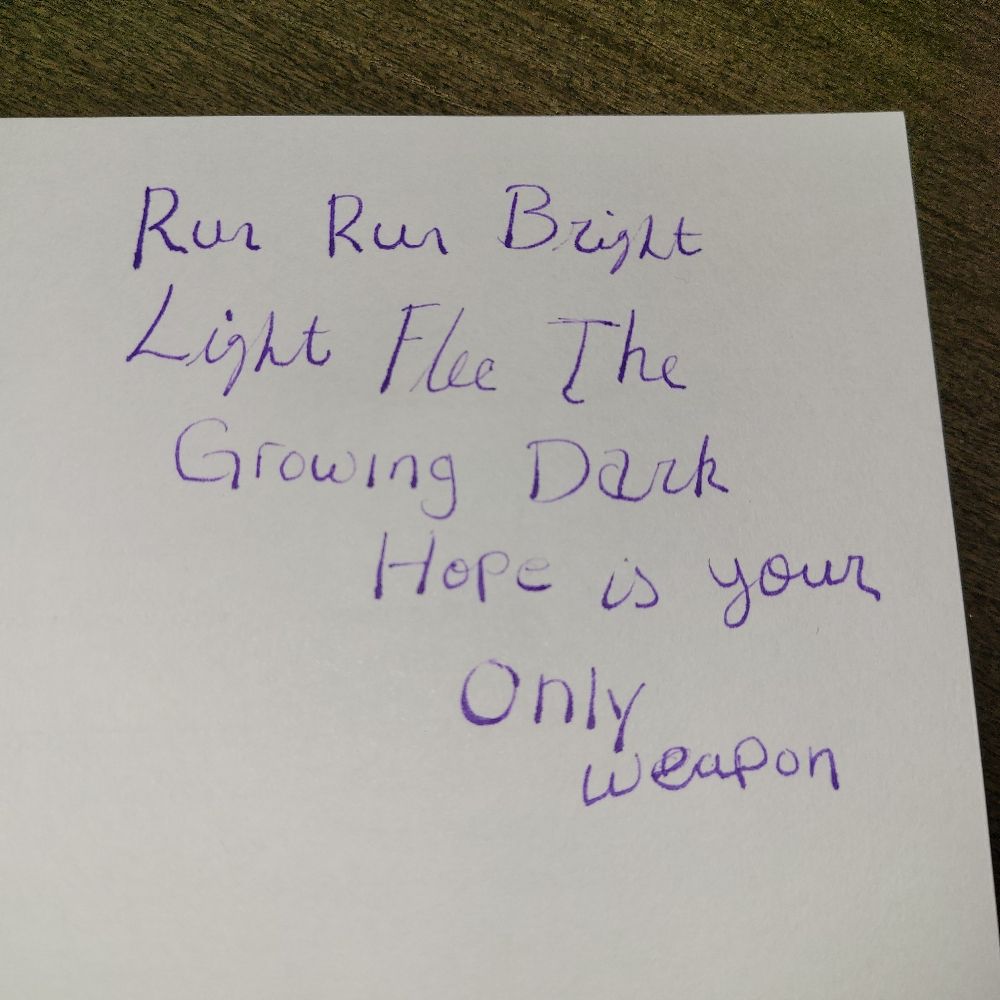 Run Run Bright
Light Flee The
Growing Dark
Hope is your
Only
weapon